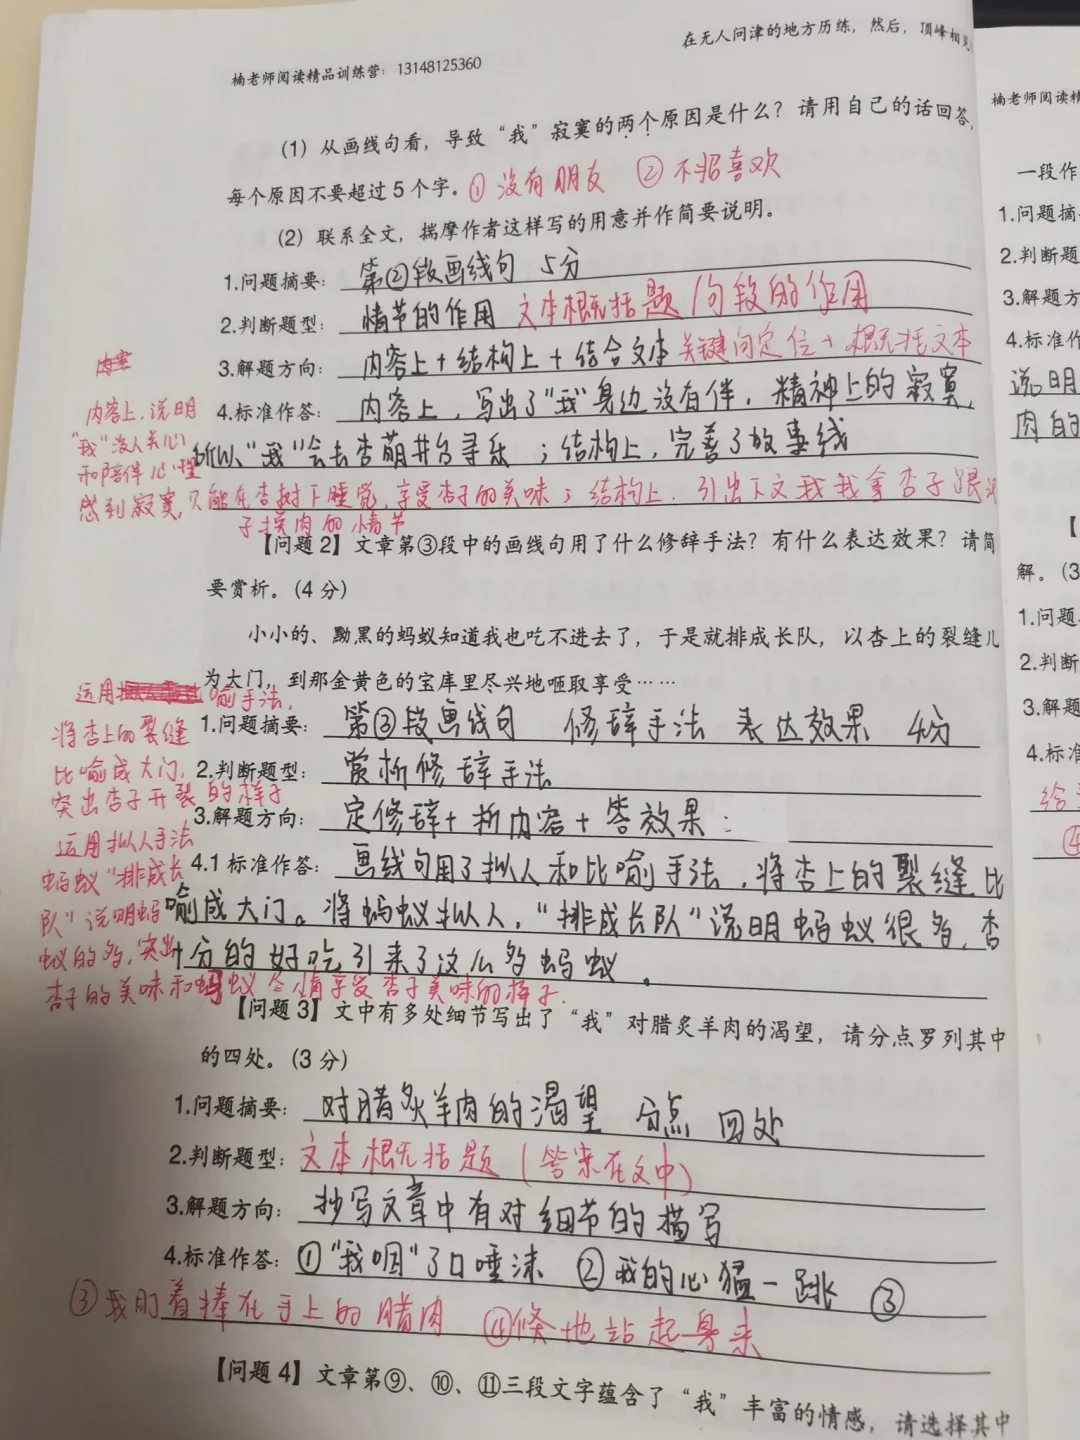 在无人问津的地方历练，然后，顶峰相见
楠老师阅读精品训练营：13148125360
(1) 从画线句看，导致“我”寂寞的两个原因是什么？请用自己的话回答，
每个原因不要超过5个字。① 没有朋友 ② 不招喜欢
(2) 联系全文，揣摩作者这样写的用意并作简要说明。
1.问题摘要：第②段画线句 5分
2.判断题型：情节的作用 文本概括题/句段的作用
3.解题方向：内容上+结构上+结合文本 关键词定位+概括文本
内容
4.标准作答：内容上，写出了“我”身边没有伴，精神上的寂寞，
所以“我”会去杏萌井台寻乐；结构上，完善了故事线
内容上，说明
“我”没人关心
和陪伴心理
感到寂寞，只能在杏树下睡觉，享受杏子的美味；结构上，引出下文我我拿杏子跟
子换肉的情节
【问题2】文章第③段中的画线句用了什么修辞手法？有什么表达效果？请简
要赏析。(4分)
小小的、黝黑的蚂蚁知道我也吃不进去了，于是就排成长队，以杏上的裂缝儿
为大门，到那金黄色的宝库里尽兴地咂取享受……
1.问题摘要：第③段画线句 修辞手法 表达效果 4分
2.判断题型：赏析修辞手法
3.解题方向：定修辞+析内容+答效果：
4.1标准作答：画线句用了拟人和比喻手法，将杏上的裂缝比
喻成大门。将蚂蚁拟人，“排成长队”说明蚂蚁很多，杏
十分的好吃引来了这么多蚂蚁。
运用 喻手法，
将杏上的裂缝
比喻成大门，
突出杏子开裂的样子
运用拟人手法
蚂蚁“排成长
队”说明蚂
蚁的多，突出
杏子的美味和蚂蚁尽情享受杏子美味的样子.
【问题3】文中有多处细节写出了“我”对腊炙羊肉的渴望，请分点罗列其中
的四处。(3分)
1.问题摘要：对腊炙羊肉的渴望 分点 四处
2.判断题型：文本概括题(答案在文中)
3.解题方向：抄写文章中有对细节的描写
4.标准作答：①“我咽”了口唾沫 ②我的心猛一跳 ③
③我盯着捧在手上的腊肉 ④倏地站起身来
【问题4】文章第⑨、⑩、⑪三段文字蕴含了“我”丰富的情感，请选择其中
楠老师阅读精
一段作
1.问题摘
2.判断题
3.解题方
4.标准作
说明
肉的
【
解。(3
1.问题
2.判断
3.解题
4.标准
给
④